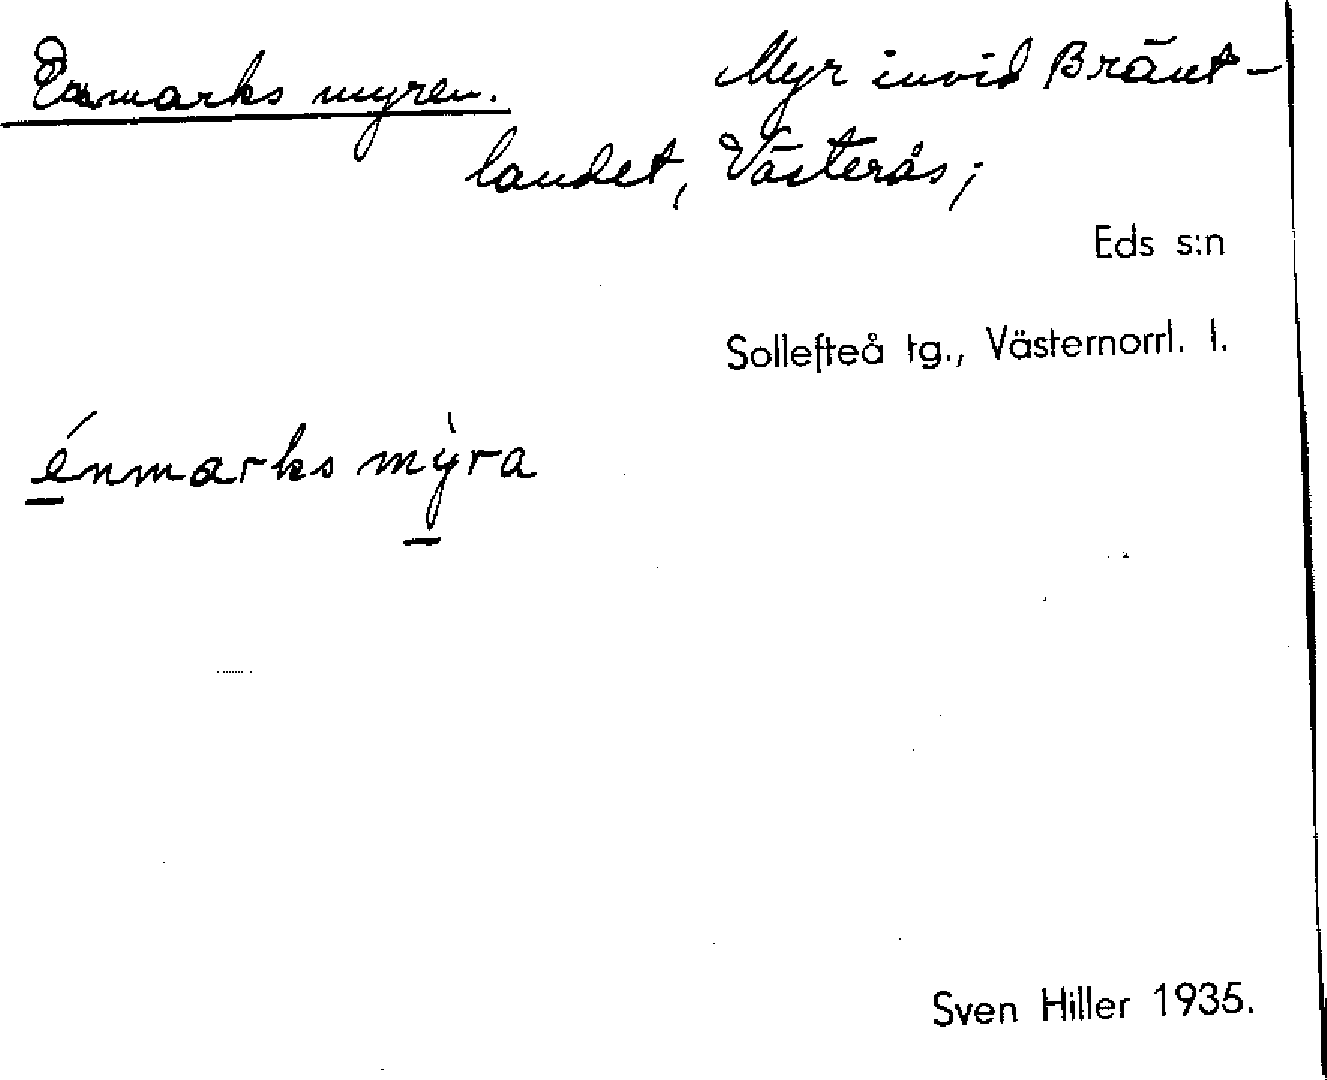 Enmarks myren. Myr invid Bränt-
landet, Västerås;
Eds s:n
Sollefteå tg., Västernorrl. l.
énmarks mỳra
Sven Hiller 1935.